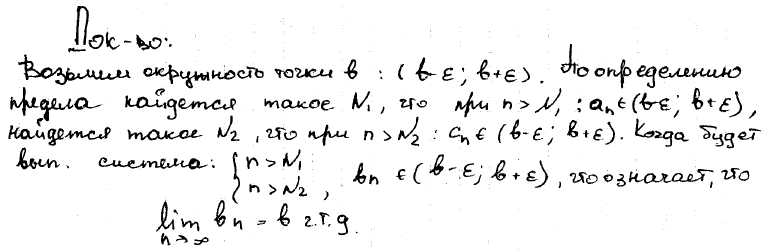 Док-во:
Возьмем окружность точки b : (b-ε; b+ε). По определению
предела найдется такое N₁, что при n > N₁ : aₙ ∈ (b-ε; b+ε),
найдется такое N₂, что при n > N₂ : cₙ ∈ (b-ε; b+ε). Когда будет
вып. система: { n > N₁
n > N₂ , bₙ ∈ (b-ε; b+ε), что означает, что
lim bₙ = b ч.т.д.
n→∞